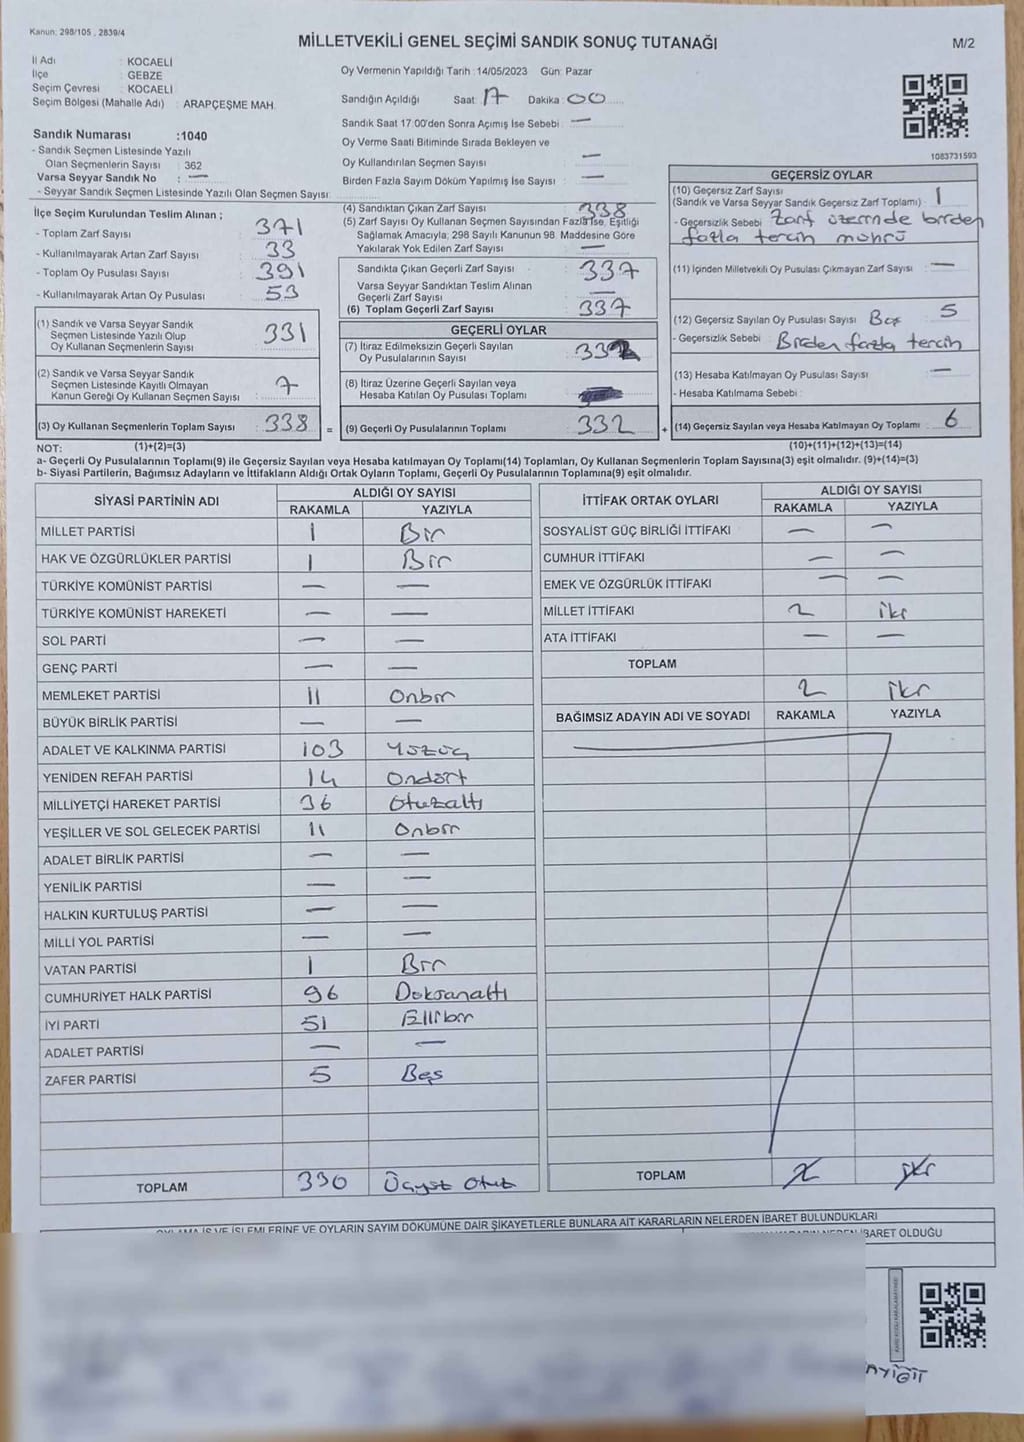 Kanun: 298/105 , 2839/4
MİLLETVEKİLİ GENEL SEÇİMİ SANDIK SONUÇ TUTANAĞI
M/2
İl Adı : KOCAELİ
İlçe : GEBZE
Seçim Çevresi : KOCAELİ
Seçim Bölgesi (Mahalle Adı) : ARAPÇEŞME MAH.
Sandık Numarası :1040
- Sandık Seçmen Listesinde Yazılı
Olan Seçmenlerin Sayısı : 362
Varsa Seyyar Sandık No : —
- Seyyar Sandık Seçmen Listesinde Yazılı Olan Seçmen Sayısı:
Oy Vermenin Yapıldığı Tarih :14/05/2023 Gün: Pazar
Sandığın Açıldığı Saat: 17 Dakika: 00
Sandık Saat 17.00'den Sonra Açımış İse Sebebi : —
Oy Verme Saati Bitiminde Sırada Bekleyen ve
Oy Kullandırılan Seçmen Sayısı : —
Birden Fazla Sayım Döküm Yapılmış İse Sayısı : —
1083731593
İlçe Seçim Kurulundan Teslim Alınan ;
- Toplam Zarf Sayısı : 371
- Kullanılmayarak Artan Zarf Sayısı : 33
- Toplam Oy Pusulası Sayısı : 391
- Kullanılmayarak Artan Oy Pusulası : 53
(1) Sandık ve Varsa Seyyar Sandık
Seçmen Listesinde Yazılı Olup
Oy Kullanan Seçmenlerin Sayısı : 331
(2) Sandık ve Varsa Seyyar Sandık
Seçmen Listesinde Kayıtlı Olmayan
Kanun Gereği Oy Kullanan Seçmen Sayısı : 7
(3) Oy Kullanan Seçmenlerin Toplam Sayısı : 338 =
(4) Sandıktan Çıkan Zarf Sayısı : 338
(5) Zarf Sayısı Oy Kullanan Seçmen Sayısından Fazla İse, Eşitliği
Sağlamak Amacıyla; 298 Sayılı Kanunun 98. Maddesine Göre
Yakılarak Yok Edilen Zarf Sayısı : —
Sandıkta Çıkan Geçerli Zarf Sayısı : 337
Varsa Seyyar Sandıktan Teslim Alınan
Geçerli Zarf Sayısı : —
(6) Toplam Geçerli Zarf Sayısı : 337
GEÇERLİ OYLAR
(7) İtiraz Edilmeksizin Geçerli Sayılan
Oy Pusulalarının Sayısı : 332
(8) İtiraz Üzerine Geçerli Sayılan veya
Hesaba Katılan Oy Pusulası Toplamı :
(9) Geçerli Oy Pusulalarının Toplamı : 332 +
GEÇERSİZ OYLAR
(10) Geçersiz Zarf Sayısı
(Sandık ve Varsa Seyyar Sandık Geçersiz Zarf Toplamı) : 1
- Geçersizlik Sebebi : Zarf üzerinde birden
fazla tercih mührü
(11) İçinden Milletvekili Oy Pusulası Çıkmayan Zarf Sayısı : —
(12) Geçersiz Sayılan Oy Pusulası Sayısı : Beş 5
- Geçersizlik Sebebi : Birden fazla tercih
(13) Hesaba Katılmayan Oy Pusulası Sayısı : —
- Hesaba Katılmama Sebebi :
(14) Geçersiz Sayılan veya Hesaba Katılmayan Oy Toplamı : 6
NOT: (1)+(2)=(3) (10)+(11)+(12)+(13)=(14)
a- Geçerli Oy Pusulalarının Toplamı(9) ile Geçersiz Sayılan veya Hesaba katılmayan Oy Toplamı(14) Toplamları, Oy Kullanan Seçmenlerin Toplam Sayısına(3) eşit olmalıdır. (9)+(14)=(3)
b- Siyasi Partilerin, Bağımsız Adayların ve İttifakların Aldığı Ortak Oyların Toplamı, Geçerli Oy Pusulalarının Toplamına(9) eşit olmalıdır.
SİYASİ PARTİNİN ADI ALDIĞI OY SAYISI
RAKAMLA YAZIYLA
MİLLET PARTİSİ 1 Bir
HAK VE ÖZGÜRLÜKLER PARTİSİ 1 Bir
TÜRKİYE KOMÜNİST PARTİSİ — —
TÜRKİYE KOMÜNİST HAREKETİ — —
SOL PARTİ — —
GENÇ PARTİ — —
MEMLEKET PARTİSİ 11 Onbir
BÜYÜK BİRLİK PARTİSİ — —
ADALET VE KALKINMA PARTİSİ 103 Yüzüç
YENİDEN REFAH PARTİSİ 14 Ondört
MİLLİYETÇİ HAREKET PARTİSİ 36 Otuzaltı
YEŞİLLER VE SOL GELECEK PARTİSİ 11 Onbir
ADALET BİRLİK PARTİSİ — —
YENİLİK PARTİSİ — —
HALKIN KURTULUŞ PARTİSİ — —
MİLLİ YOL PARTİSİ — —
VATAN PARTİSİ 1 Bir
CUMHURİYET HALK PARTİSİ 96 Doksanaltı
İYİ PARTİ 51 Ellibir
ADALET PARTİSİ — —
ZAFER PARTİSİ 5 Beş
TOPLAM 330 Üçyüz Otuz
İTTİFAK ORTAK OYLARI ALDIĞI OY SAYISI
RAKAMLA YAZIYLA
SOSYALİST GÜÇ BİRLİĞİ İTTİFAKI — —
CUMHUR İTTİFAKI — —
EMEK VE ÖZGÜRLÜK İTTİFAKI — —
MİLLET İTTİFAKI 2 iki
ATA İTTİFAKI — —
TOPLAM
2 iki
BAĞIMSIZ ADAYIN ADI VE SOYADI RAKAMLA YAZIYLA
TOPLAM 2 iki
OYLAMA İŞ VE İŞLEMLERİNE VE OYLARIN SAYIM DÖKÜMÜNE DAİR ŞİKAYETLERLE BUNLARA AİT KARARLARIN NELERDEN İBARET BULUNDUKLARI
İBARET OLDUĞU